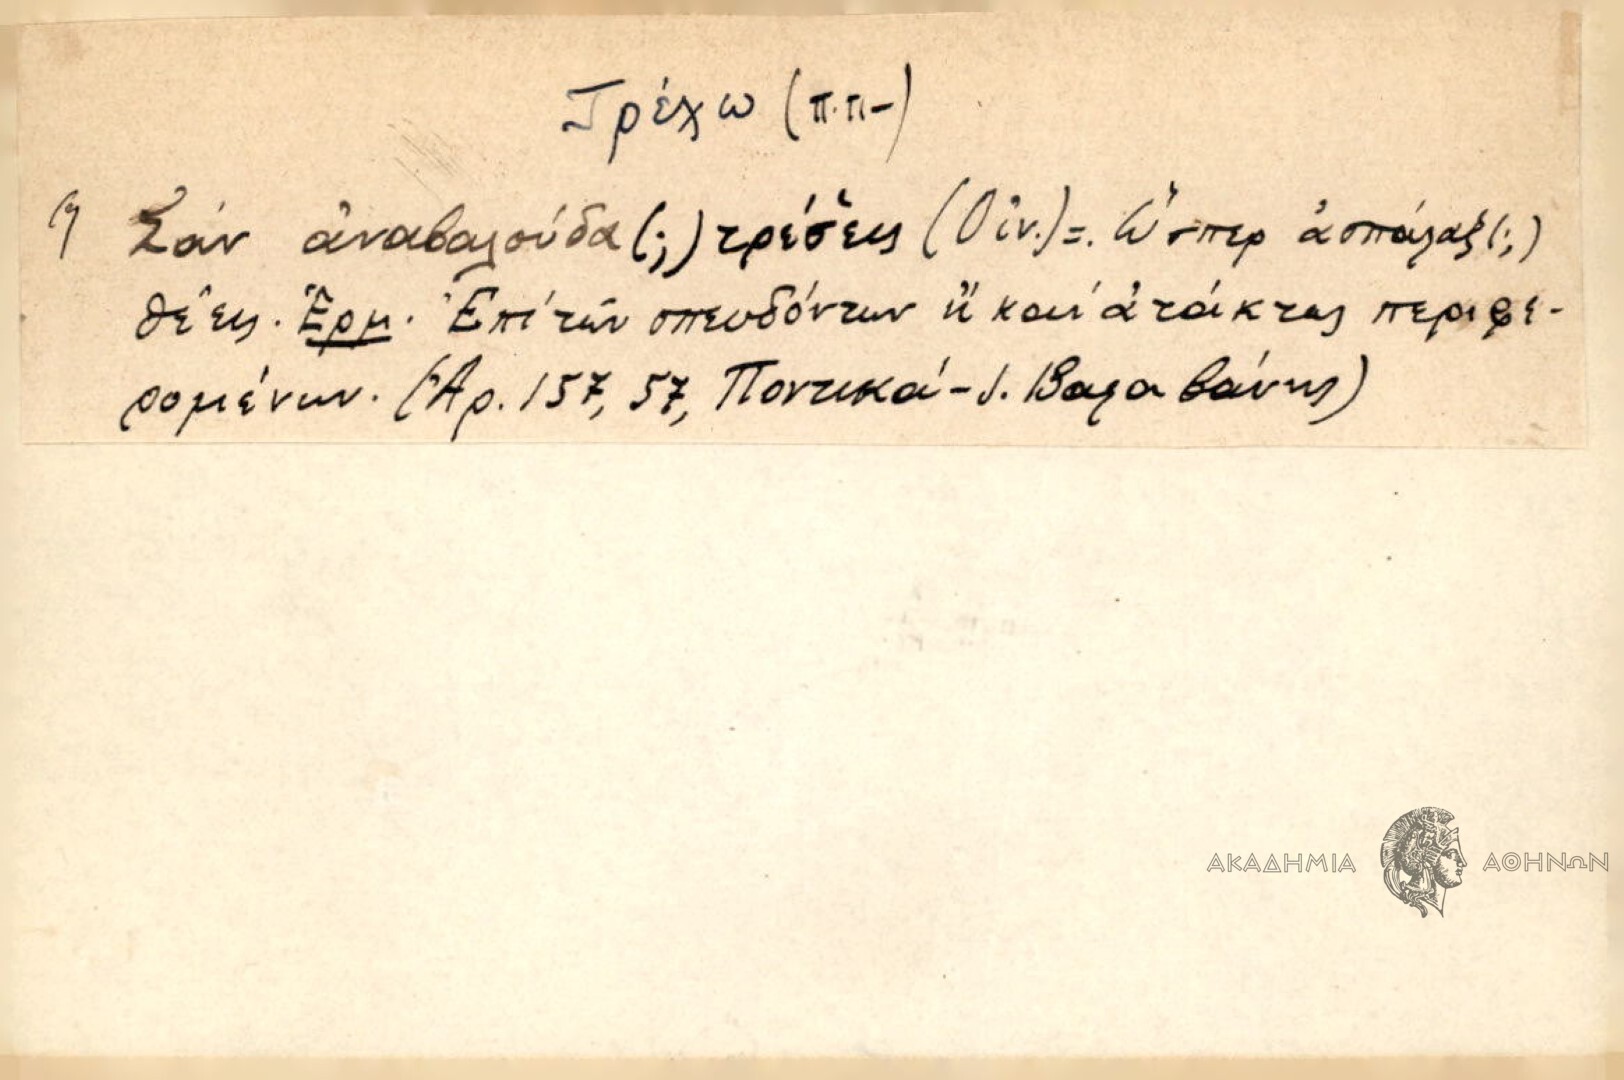 Τρέχω (π.π-)
Σάν ἀναβαλούδα (;) τρέσεις (Οἰν.) =. Ὥσπερ ἀσπάλαξ (;)
θέεις. Ἑρμ. Ἐπί τῶν σπευδόντων ἤ καί ἀτάκτως περιφε-
ρομένων. (Ἀρ. 157, 57, Ποντικά - Ι. Βαλαβάνης)
ΑΚΑΔΗΜΙΑ ΑΘΗΝΩΝ